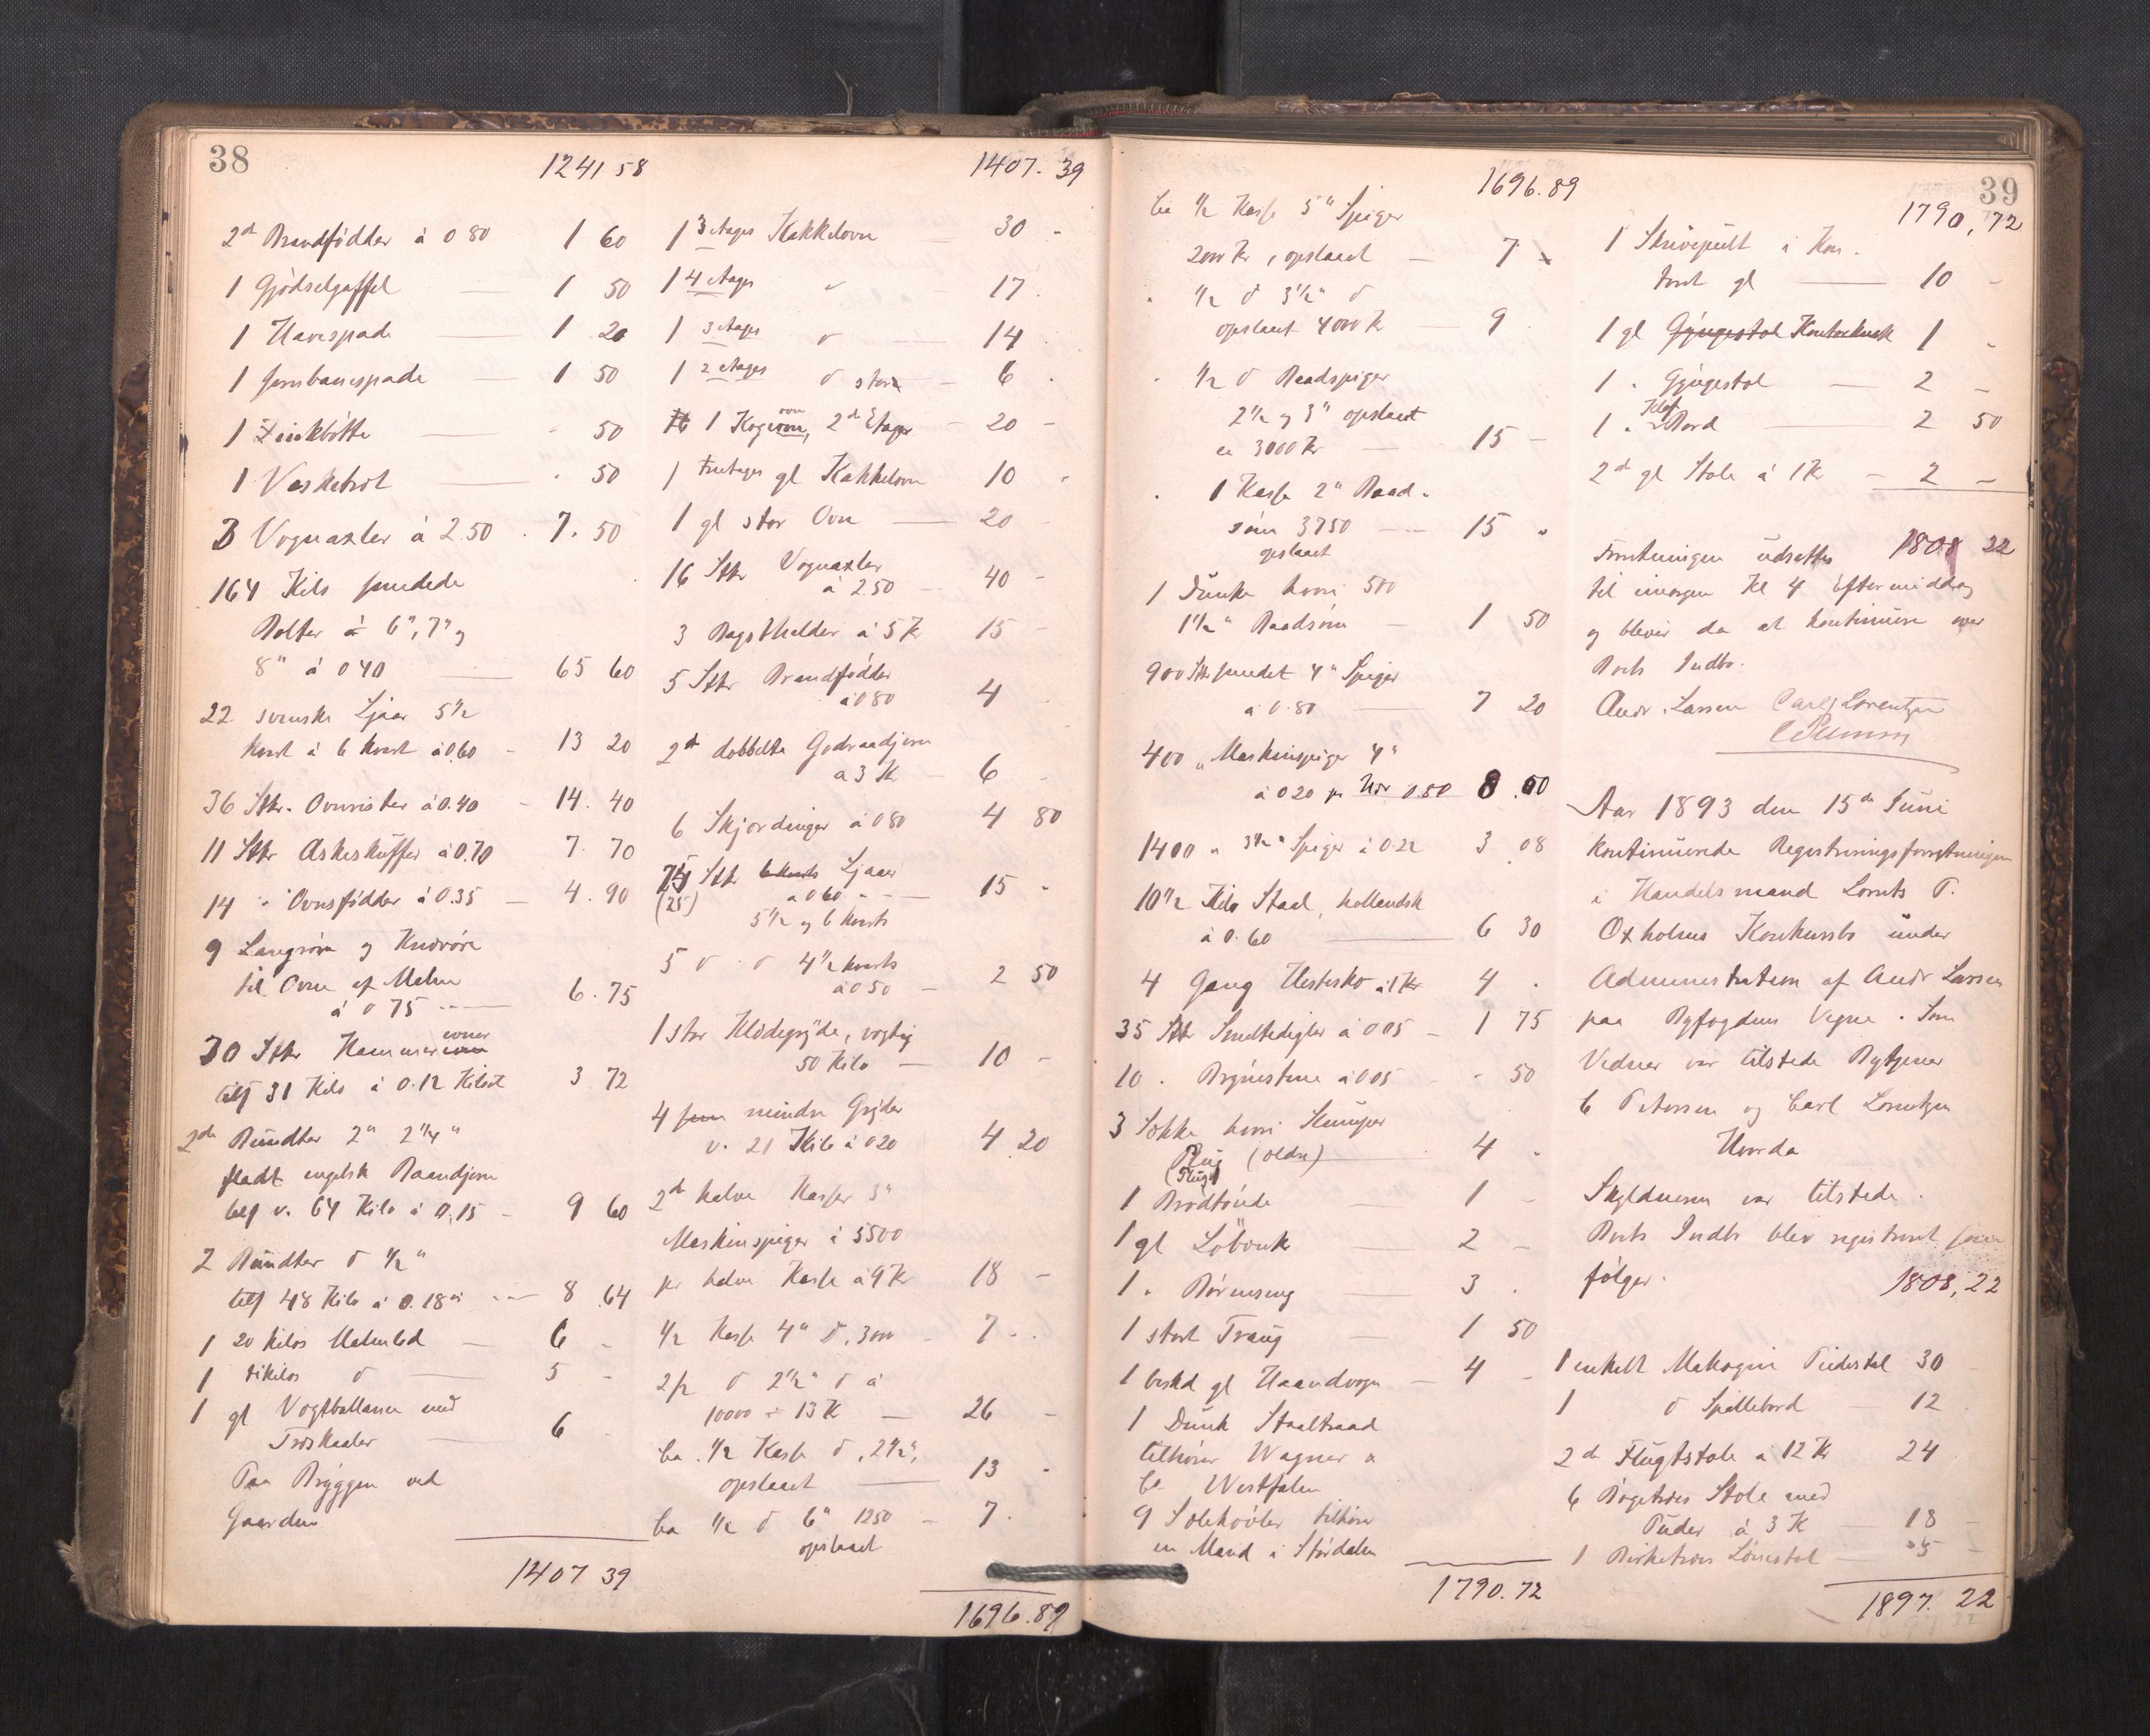 38
1241 58
2de Brandfödder à 0 80 1 60
1 Gjödselgaffel 1 50
1 Havespade 1 20
1 Jernbanespade 1 50
1 Zinkbötte - 50
1 Vasketröt - 50
3 Vognaxler à 2.50 7. 50
164 Kilo smedede
Bolter à 6", 7" og
8" à 0 40 65 60
22 svenske Ljaar 5 1/2
kvart à 6 kvart à 0,60 13 20
36 Stkr. Ovnrister à 0.40 14. 40
11 Stkr Askeskuffer à 0.70 7. 70
14 " Ovnsfödder à 0.35 4. 90
9 Langrör og Knærör
til Ovne af Malm
à 0 75 6. 75
30 Stkr Hammer
tils 31 Kilo à 0.12 Kilot 3 72
2de Bundter 2" 2 1/4"
fladt engelsk Baandjern
tils v. 64 Kilo à 0,15 9 60
2 Bundter d 1/2"
tils 48 Kilo à 0.18 8 64
1 20 Kilos Malmlod 6 -
1 10 kilos d 5 -
1 gl Vægtballance med
Træskaaler 6 -
Paa Bryggen ved
Gaarden
1407 39
1407. 39
1 3 Etages Kakkelovn 30 -
1 4 Etages " 17 .
1 3 Etages " 14 .
1 2 Etages d større 6 .
1 Kogeovn, 2de Etager 20 -
1 gl Kakkelovn 10 -
1 gl stor Ovn 20
16 Stkr Vognaxler
à 2.50 40 -
3 Bagsthelder à 5 Kr 15 -
5 Stkr Brandfödder
à 0 80 4 .
2de dobbelte Godraadjern
à 3 Kr 6 -
6 Skjordinger à 0 80 4 80
Stkr Ljaaer
(25) à 0 60 15 -
5 1/2 og 6 kvarts
5 d d 4 1/2 kvarts
à 0 50 2 50
1 stor Klædegryde, vægtig
50 Kilo 10 -
4 mindre Gryder
v. 21 Kilo à 0 20 4 20
2de halve Kasser 3"
Maskinspiger à 5500
pr halve Kasse à 9 Kr 18 -
1/2 Kasse 4" d, 3000 7 -
2/2 d 2 1/2" d à
10000 à 13 Kr 26 -
Ca 1/2 Kasse d, 2 1/2",
opslaaet 13 -
Ca 1/2 d 6" 1250 7 .
opslaaet
1696.89
1696.89
Ca 1/2 Kasse 5" Spiger
2000 Kr, opslaaet 7 -
" 1/2 d 3 1/2" d
opslaaet 4000 Kr 9
" 1/2 d Baadspiger
2 1/2 og 3" opslaaet
ca 3000 Kr 15 -
" 1 Kasse 2" Baad-
söm 3750 15 "
opslaaet
1 Dunke hvori 500
1 1/2" Baadsöm 1 50
900 Stkr smedet 4" Spiger
à 0.80 7 20
400 " Maskinspiger 4"
à 0 20 pr 8.00
1400 " 3 1/2" Spiger à 0.22 3 08
10 1/2 Kilo Staal, hollandsk
à 0.60 6 30
4 Gang Hestesko à 1 Kr 4 .
35 Stkr Smeltedigler à 0 05 1 75
10 " Brynestene à 0 05 - 50
3 Sække hvori
(ældre) 4 .
1 Brödtönde 1 -
1 gl Löbænk 2 -
1 " Börneseng 3 .
1 stort Traug 1 50
1 beskd gl Haandvogn 4 -
1 Dunk Staaltraad
tilhörer Wagner &
Co Westfalen
9 Solehövler tilhörer
en Mand i Stördalen
1790.72
39
1790,72
1 Skrivepult i Kon-
toret gl 10 -
1 gl Gyngestol Kontorkrak 1 -
1 " Gyngestol 2 -
1 " Klaf Bord 2 50
2de gl Stole à 1 Kr 2 -
Forretningen udsættes 1808 22
til imorgen Kl 4 Eftermiddag
og bliver da at kontinuere over
Boets Indbo.
Andr. Larsen Carl Lorentzen
Aar 1893 den 15de Juni
kontinuerede Registreringsforretningen
i Handelsmand Lorents P.
Oxholms Konkursbo under
Administration af Andr Larsen
paa Byfogdens Vegne. Som
Vidner var tilstede Bytjener
C Petersen og Carl Lorentzen
Hvorda
Skyldneren var tilstede.
Boets Indbo blev registreret som
følger. 1808,22
1 enkelt Mahogni Pidestal 30
1 d Spillebord 12
2de Flugtstole à 12 Kr 24
6 Bögetræs Stole med
Puder à 3 Kr 18 -
1 Birketræs Lænestol 5 -
1897. 22